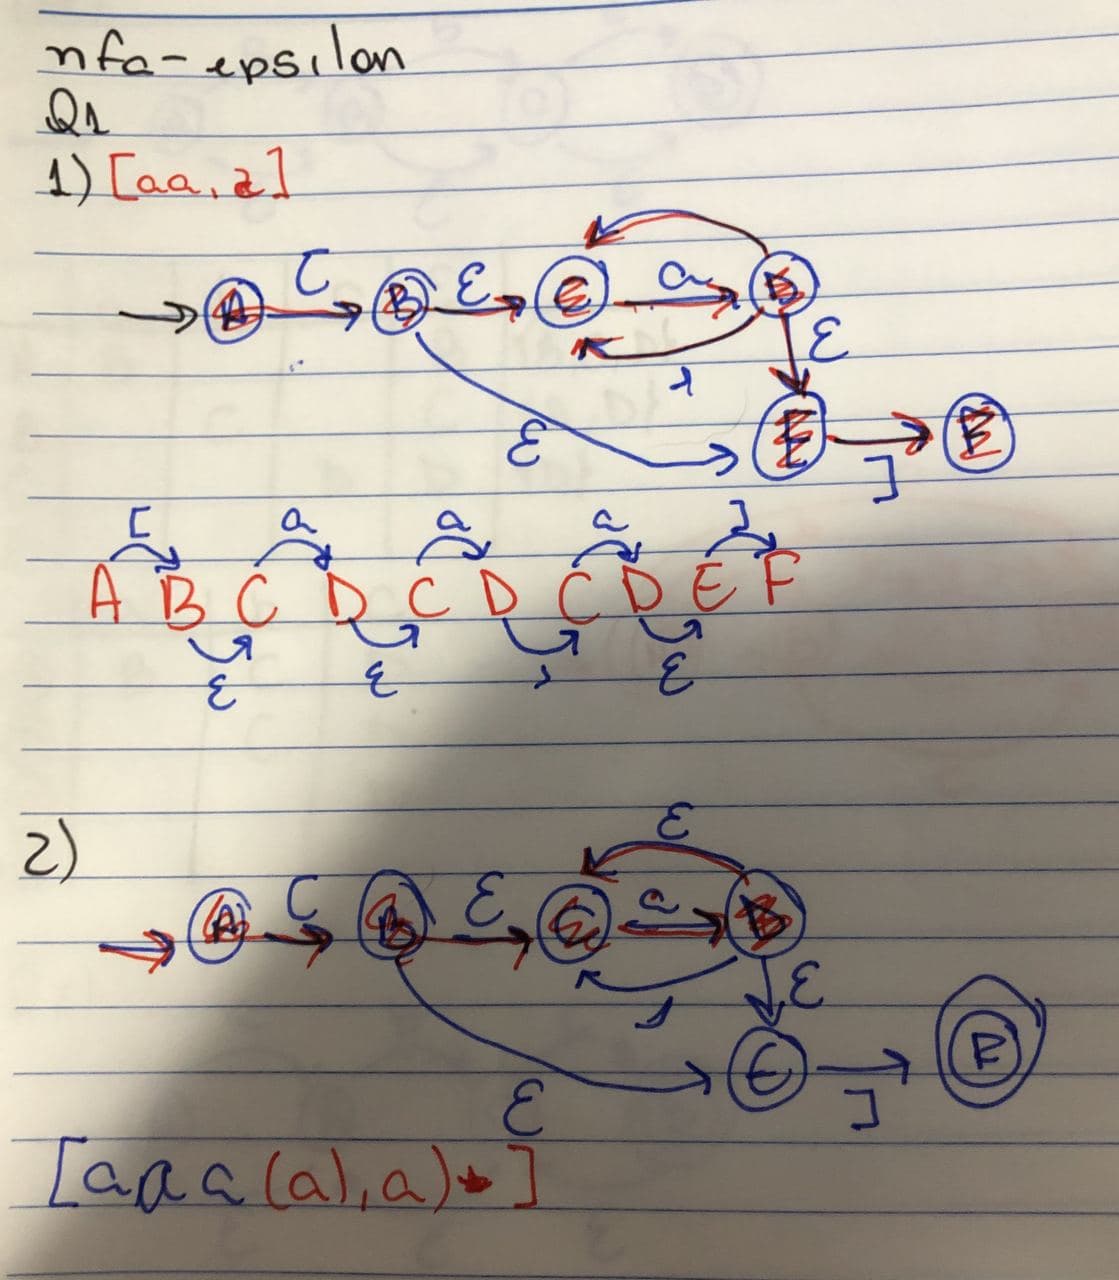 nfa-epsilon
Q1
1) [aa,a]
A [ B ε C a D
, ε
ε E ] F
[ a a a ]
A B C D C D C D E F
ε ε , ε
2)
ε
A [ B ε C a D
, ε
ε E ] F
[aaa(a),a)*]